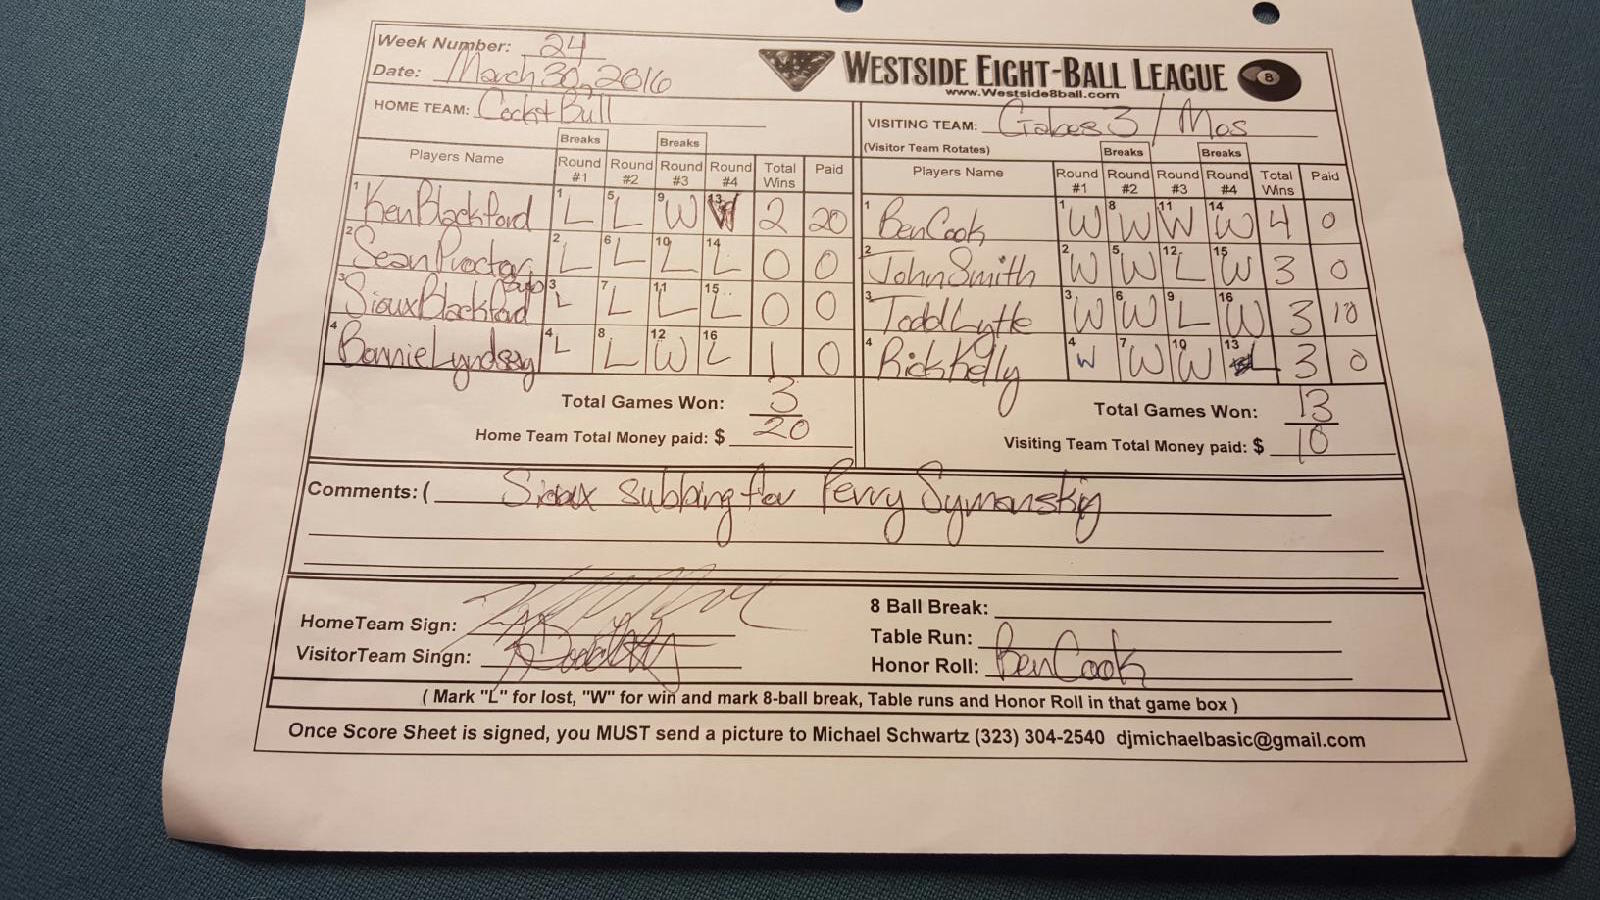 Week Number: 24
Date: March 30, 2016
WESTSIDE EIGHT-BALL LEAGUE
www.Westside8ball.com
8
HOME TEAM: Cock + Bull
VISITING TEAM: Gabes 3 / Mos
(Visitor Team Rotates)
Breaks Breaks
Players Name Round #1 Round #2 Round #3 Round #4 Total Wins Paid
1 Ken Blackford 1 L 5 L 9 W 13 W 2 20
2 Sean Proctor 2 L 6 L 10 L 14 L 0 0
3 Sioux Blackford Sub 3 L 7 L 11 L 15 L 0 0
4 Bonnie Lyndsay 4 L 8 L 12 W 16 L 1 0
Total Games Won: 3
Home Team Total Money paid: $ 20
Breaks Breaks
Players Name Round #1 Round #2 Round #3 Round #4 Total Wins Paid
1 Ben Cook 1 W 8 W 11 W 14 W 4 0
2 John Smith 2 W 5 W 12 L 15 W 3 0
3 Todd Lytle 3 W 6 W 9 L 16 W 3 10
4 Rick Kelly 4 W 7 W 10 W 13 L 3 0
Total Games Won: 13
Visiting Team Total Money paid: $ 10
Comments: ( Sioux subbing for Perry Symanski
HomeTeam Sign:
VisitorTeam Singn:
8 Ball Break:
Table Run:
Honor Roll: Ben Cook
( Mark "L" for lost, "W" for win and mark 8-ball break, Table runs and Honor Roll in that game box )
Once Score Sheet is signed, you MUST send a picture to Michael Schwartz (323) 304-2540 djmichaelbasic@gmail.com